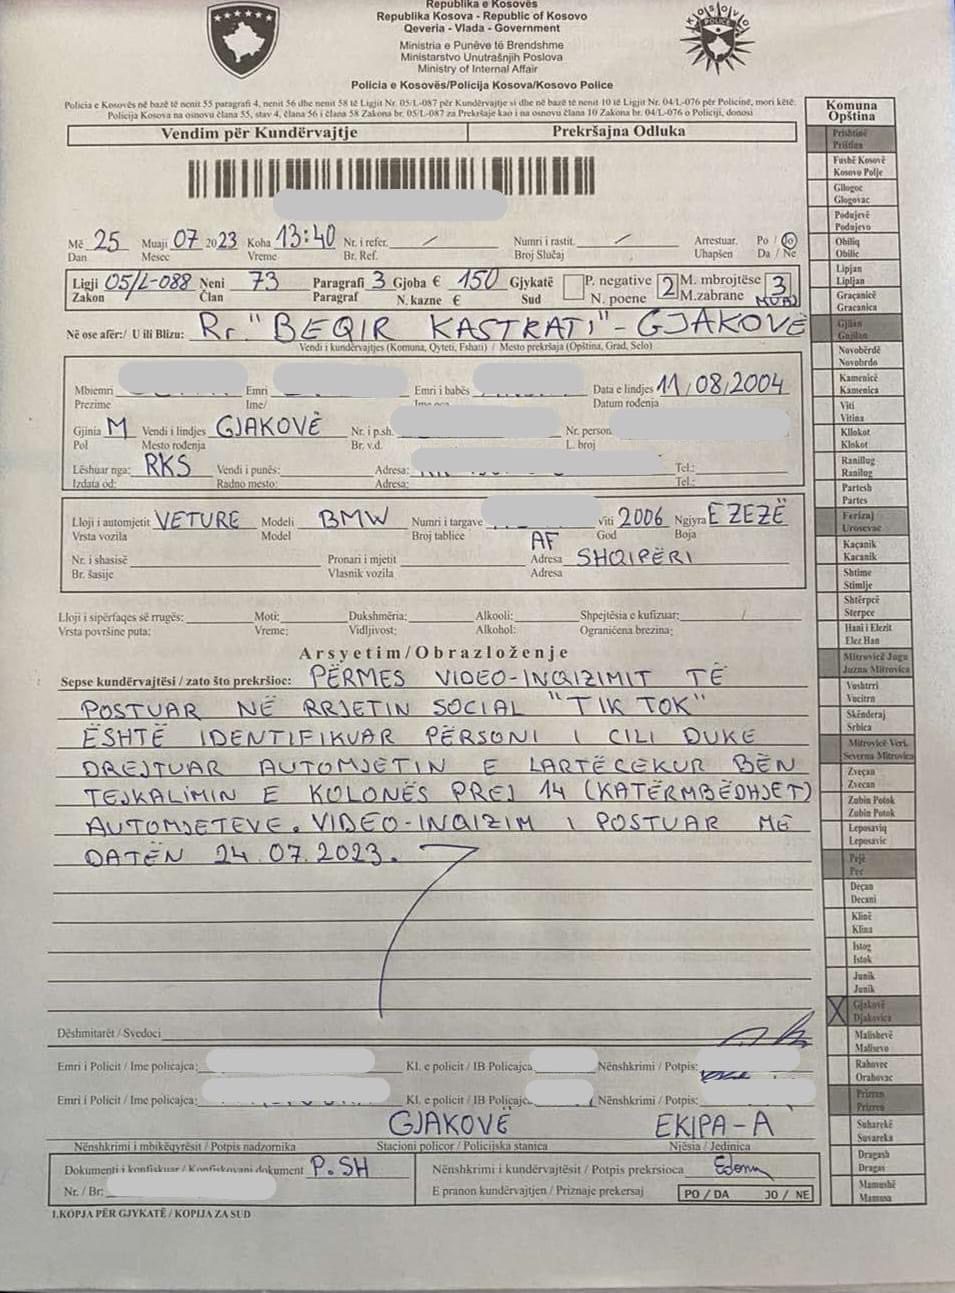 Republika e Kosovës
Republika Kosova - Republic of Kosovo
Qeveria - Vlada - Government
Ministria e Punëve të Brendshme
Ministarstvo Unutrašnjih Poslova
Ministry of Internal Affair
Policia e Kosovës/Policija Kosova/Kosovo Police
KOSOVO
POLICE
Policia e Kosovës në bazë të nenit 55 paragrafi 4, nenit 56 dhe nenit 58 të Ligjit Nr. 05/L-087 për Kundërvajtje si dhe në bazë të nenit 10 të Ligjit Nr. 04/L-076 për Policinë, mori këtë:
Policija Kosova na osnovu člana 55, stav 4, člana 56 i člana 58 Zakona br. 05/L-087 za Prekršaje kao i na osnovu člana 10 Zakona br. 04/L-076 o Policiji, donosi
Vendim për Kundërvajtje Prekršajna Odluka
Më 25 Muaji 07 2023 Koha 13:40 Nr. i refer. / Numri i rastit. / Arrestuar. Po / Jo
Dan Mesec Vreme Br. Ref. Broj Slučaj Uhapšen Da / Ne
Ligji 05/L-088 Neni 73 Paragrafi 3 Gjoba € 150 Gjykatë P. negative 2 M. mbrojtëse 3
Zakon Član Paragraf N. kazne € Sud N. poene M.zabrane MUAJ
Në ose afër:/ U ili Blizu: Rr. "BEQIR KASTRATI" - GJAKOVË
Vendi i kundërvajtjes (Komuna, Qyteti, Fshati) / Mesto prekršaja (Opština, Grad, Selo)
Mbiemri Emri Emri i babës Data e lindjes 11/08/2004
Prezime Ime/ Datum rođenja
Gjinia M Vendi i lindjes GJAKOVË Nr. i p.sh. Nr. person
Pol Mesto rođenja Br. v.d. L. broj
Lëshuar nga: RKS Vendi i punës: Adresa: Tel.:
Izdata od: Radno mesto: Adresa: Tel.:
Lloji i automjetit VETURË Modeli BMW Numri i targave Viti 2006 Ngjyra E ZEZË
Vrsta vozila Model Broj tablice AF God Boja
Nr. i shasisë Pronari i mjetit Adresa SHQIPËRI
Br. šasije Vlasnik vozila Adresa
Lloji i sipërfaqes së rrugës: Moti: Dukshmëria: Alkooli: Shpejtësia e kufizuar: /
Vrsta površine puta: Vreme: Vidljivost: Alkohol: Ograničena brezina:
Arsyetim/Obrazloženje
Sepse kundërvajtësi / zato što prekršioc: PËRMES VIDEO-INQIZIMIT TË
POSTUAR NË RRJETIN SOCIAL "TIK TOK"
ËSHTË IDENTIFIKUAR PËRSONI I CILI DUKE
DREJTUAR AUTOMJETIN E LARTËCEKUR BËN
TEJKALIMIN E KOLONËS PREJ 14 (KATËRMBËDHJET)
AUTOMJETEVE. VIDEO-INQIZIM I POSTUAR MË
DATËN 24.07.2023.
Dëshmitarët / Svedoci
Emri i Policit / Ime policajca: Kl. e policit / IB Policajca Nënshkrimi / Potpis:
Emri i Policit / Ime policajca: Kl. e policit / IB Policajca Nënshkrimi / Potpis:
GJAKOVË EKIPA-A
Nënshkrimi i mbikëqyrësit / Potpis nadzornika Stacioni policor / Policijska stanica Njësia / Jedinica
Dokumenti i konfiskuar / Konfiskovani dokument P.SH Nënshkrimi i kundërvajtësit / Potpis prekrsioca
Nr. / Br: E pranon kundërvajtjen / Priznaje prekersaj PO / DA JO / NE
1.KOPJA PËR GJYKATË / KOPIJA ZA SUD
Komuna
Opština
Prishtinë
Priština
Fushë Kosovë
Kosovo Polje
Gllogoc
Glogovac
Podujevë
Podujevo
Obiliq
Obilic
Lipjan
Lipljan
Graçanicë
Gracanica
Gjilan
Gnjilan
Novobërdë
Novobrdo
Kamenicë
Kamenica
Viti
Vitina
Kllokot
Klokot
Ranillug
Ranilug
Partesh
Partes
Ferizaj
Urosevac
Kaçanik
Kacanik
Shtime
Stimlje
Shtërpcë
Sterpce
Hani i Elezit
Elez Han
Mitrovicë Jugu
Juzna Mitrovica
Vushtrri
Vucitrn
Skënderaj
Srbica
Mitrovicë Veri.
Severna Mitrovica
Zveçan
Zvecan
Zubin Potok
Zubin Potok
Leposaviq
Leposavic
Pejë
Pec
Deçan
Decani
Klinë
Klina
Istog
Istok
Junik
Junik
X Gjakovë
Djakovica
Malishevë
Malisevo
Rahovec
Orahovac
Prizren
Prizren
Suharekë
Suvareka
Dragash
Dragas
Mamushë
Mamusa